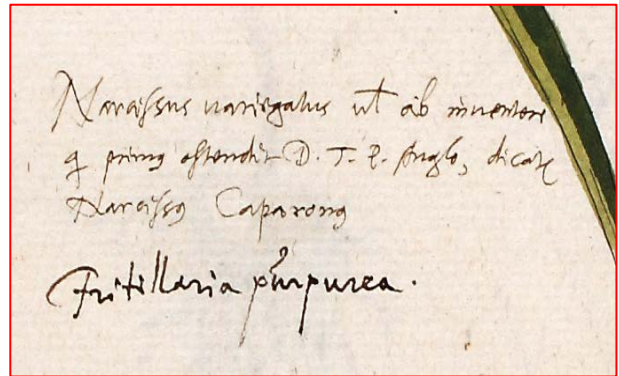 Narcissus uariegatus ut ab inuentore
q primꝰ ostendit D. T. P. Anglo, dicatꝝ
Narcissꝰ Caparonꝰ
Fritillaria purpurea.